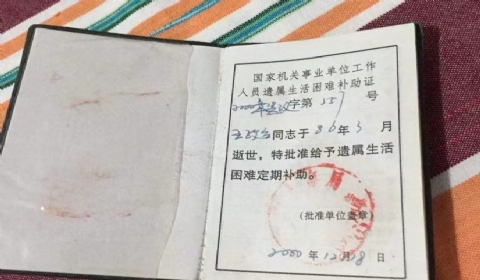 国家机关事业单位工作
人员遗属生活困难补助证
2000年 字第 551 号
同志于86年3月
逝世，特批准给予遗属生活
困难定期补助。
(批准单位盖章)
2000年12月18日